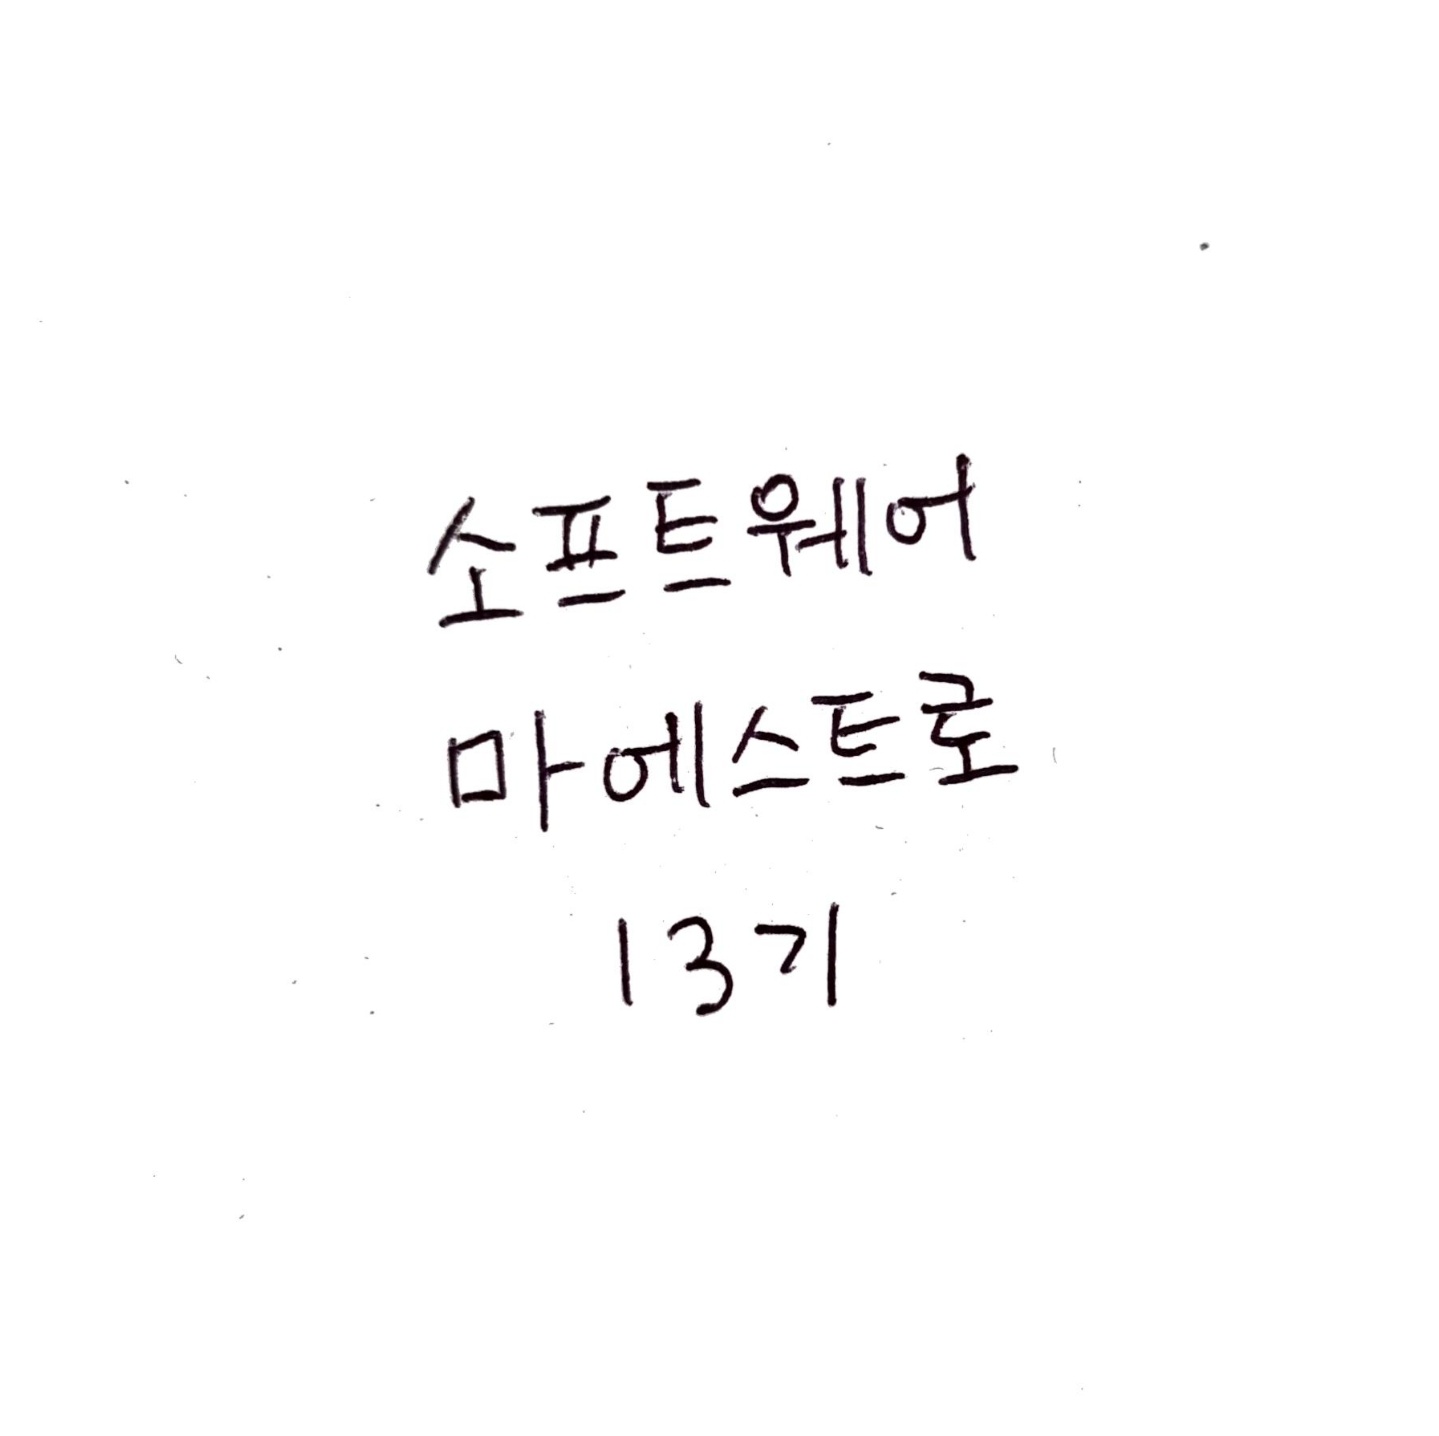 소프트웨어
마에스트로
13기